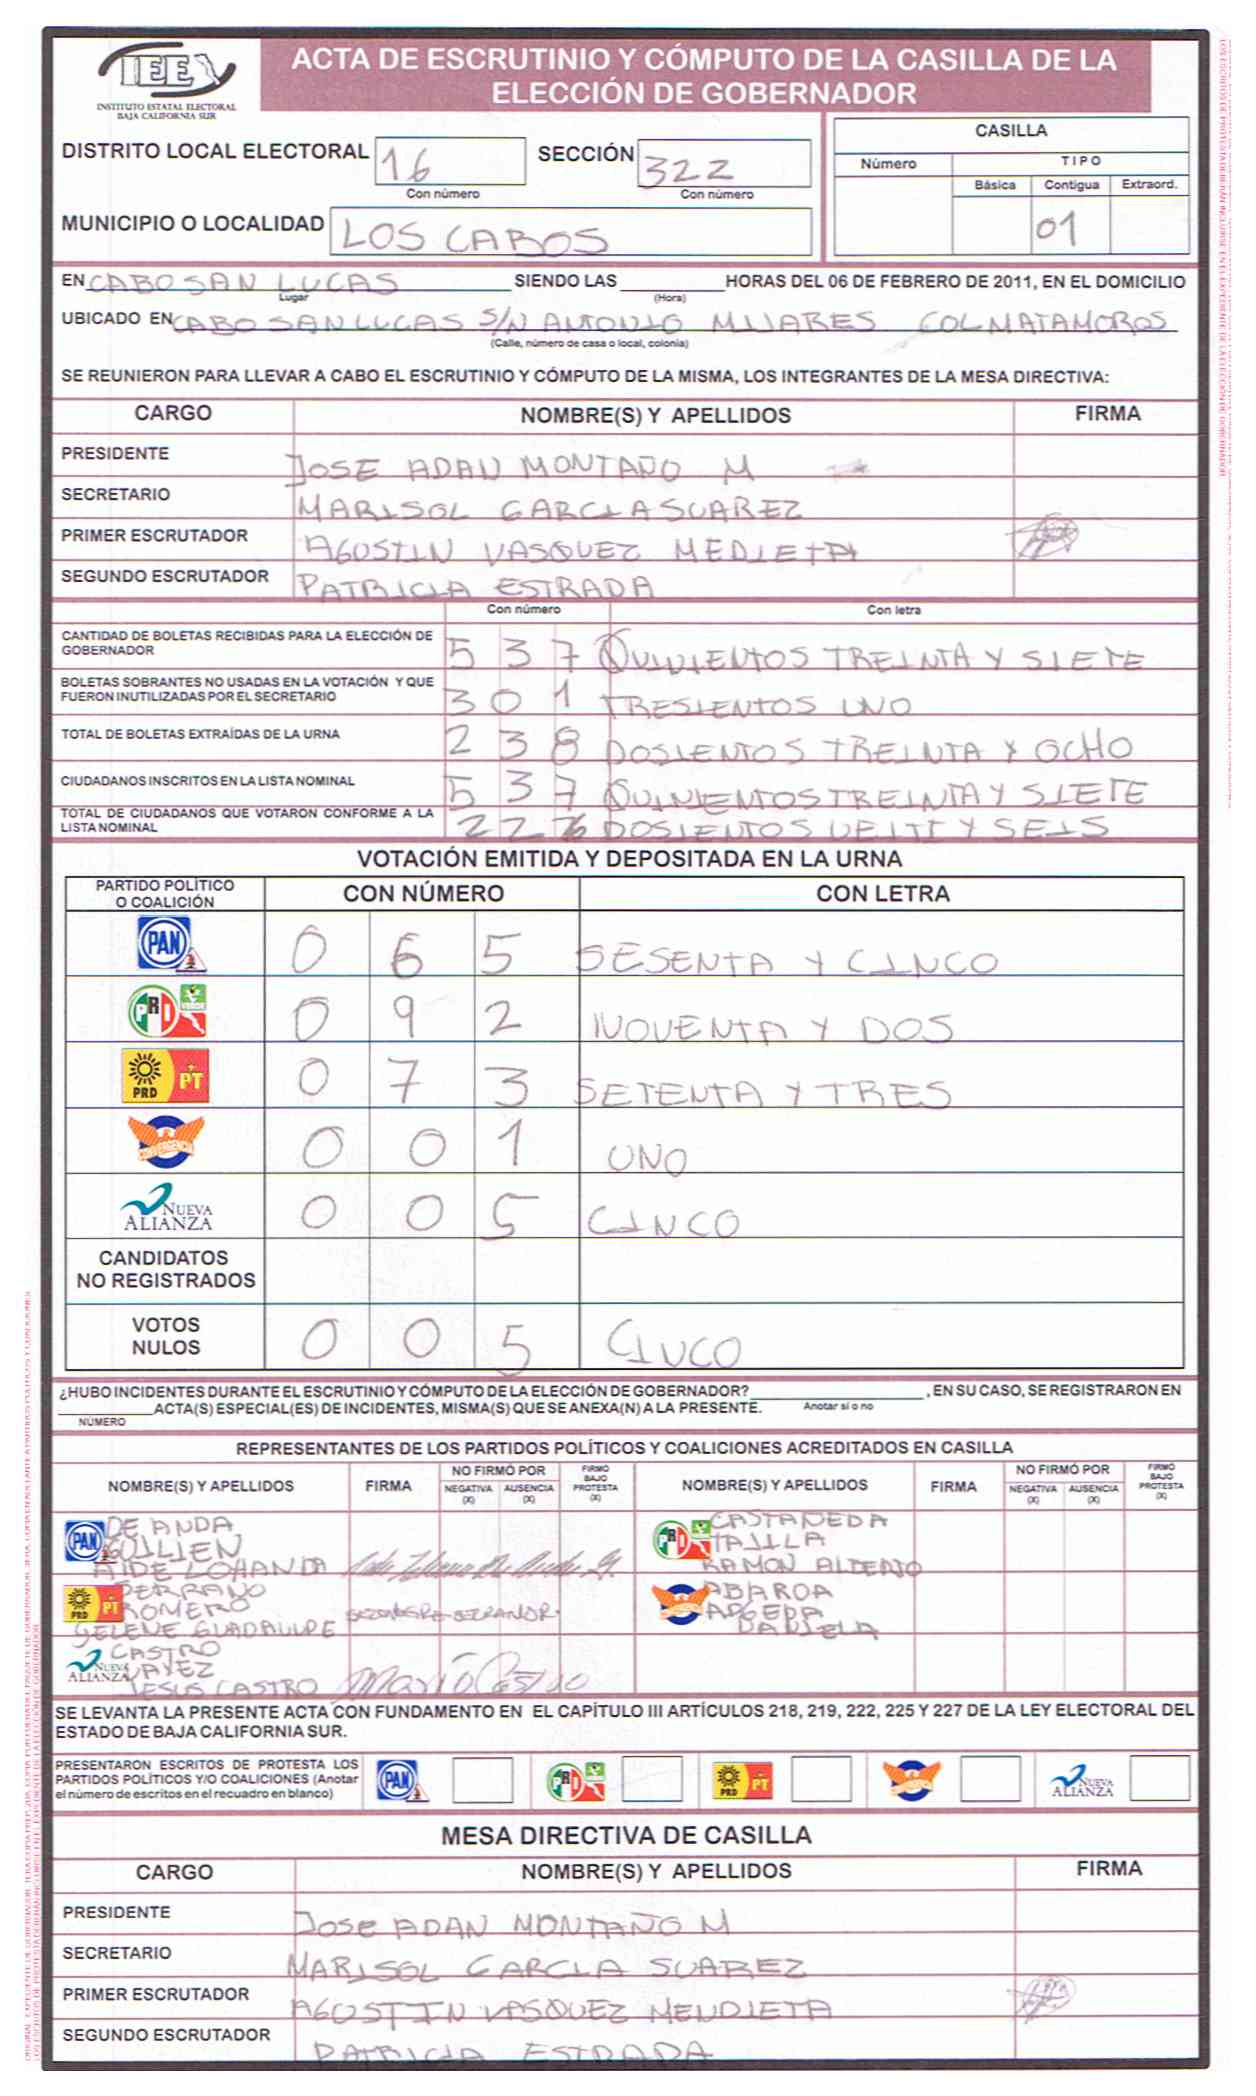 IEE
INSTITUTO ESTATAL ELECTORAL
BAJA CALIFORNIA SUR
ACTA DE ESCRUTINIO Y CÓMPUTO DE LA CASILLA DE LA
ELECCIÓN DE GOBERNADOR
DISTRITO LOCAL ELECTORAL 16 SECCIÓN 322
Con número Con número
MUNICIPIO O LOCALIDAD LOS CABOS
CASILLA
Número TIPO
Básica Contigua Extraord.
01
EN CABO SAN LUCAS SIENDO LAS HORAS DEL 06 DE FEBRERO DE 2011, EN EL DOMICILIO
Lugar (Hora)
UBICADO EN CABO SAN LUCAS S/N ANTONIO MIJARES COL MATAMOROS
(Calle, número de casa o local, colonia)
SE REUNIERON PARA LLEVAR A CABO EL ESCRUTINIO Y CÓMPUTO DE LA MISMA, LOS INTEGRANTES DE LA MESA DIRECTIVA:
CARGO NOMBRE(S) Y APELLIDOS FIRMA
PRESIDENTE JOSE ADAN MONTAÑO M
SECRETARIO MARISOL GARCIA SUAREZ
PRIMER ESCRUTADOR AGOSTIN VASQUEZ MEDIETA
SEGUNDO ESCRUTADOR PATRICIA ESTRADA
Con número Con letra
CANTIDAD DE BOLETAS RECIBIDAS PARA LA ELECCIÓN DE
GOBERNADOR 537 QUINIENTOS TREINTA Y SIETE
BOLETAS SOBRANTES NO USADAS EN LA VOTACIÓN Y QUE
FUERON INUTILIZADAS POR EL SECRETARIO 301 TRESIENTOS UNO
TOTAL DE BOLETAS EXTRAÍDAS DE LA URNA 238 DOSIENTOS TREINTA Y OCHO
CIUDADANOS INSCRITOS EN LA LISTA NOMINAL 537 QUINIENTOS TREINTA Y SIETE
TOTAL DE CIUDADANOS QUE VOTARON CONFORME A LA
LISTA NOMINAL 226 DOSIENTOS VEITI Y SEIS
VOTACIÓN EMITIDA Y DEPOSITADA EN LA URNA
PARTIDO POLÍTICO
O COALICIÓN CON NÚMERO CON LETRA
PAN 0 6 5 SESENTA Y CINCO
PRI VERDE 0 9 2 NOVENTA Y DOS
PRD PT 0 7 3 SETENTA Y TRES
CONVERGENCIA 0 0 1 UNO
NUEVA ALIANZA 0 0 5 CINCO
CANDIDATOS
NO REGISTRADOS
VOTOS
NULOS 0 0 5 CINCO
¿HUBO INCIDENTES DURANTE EL ESCRUTINIO Y CÓMPUTO DE LA ELECCIÓN DE GOBERNADOR? , EN SU CASO, SE REGISTRARON EN
ACTA(S) ESPECIAL(ES) DE INCIDENTES, MISMA(S) QUE SE ANEXA(N) A LA PRESENTE. Anotar sí o no
NÚMERO
REPRESENTANTES DE LOS PARTIDOS POLÍTICOS Y COALICIONES ACREDITADOS EN CASILLA
NOMBRE(S) Y APELLIDOS FIRMA NO FIRMÓ POR NEGATIVA (X) AUSENCIA (X) FIRMÓ BAJO PROTESTA (X) NOMBRE(S) Y APELLIDOS FIRMA NO FIRMÓ POR NEGATIVA (X) AUSENCIA (X) FIRMÓ BAJO PROTESTA (X)
PAN DE ANDA
GUILLEN
AIDE
PRI CASTAÑEDA
RAMON
PRD PT SERRANO
ROMERO
SELENE GUADALUPE
ABAROA
DANIELA
NUEVA ALIANZA CASTRO
JESUS CASTRO
SE LEVANTA LA PRESENTE ACTA CON FUNDAMENTO EN EL CAPÍTULO III ARTÍCULOS 218, 219, 222, 225 Y 227 DE LA LEY ELECTORAL DEL
ESTADO DE BAJA CALIFORNIA SUR.
PRESENTARON ESCRITOS DE PROTESTA LOS
PARTIDOS POLÍTICOS Y/O COALICIONES (Anotar
el número de escritos en el recuadro en blanco)
PAN PRI PRD PT NUEVA ALIANZA
MESA DIRECTIVA DE CASILLA
CARGO NOMBRE(S) Y APELLIDOS FIRMA
PRESIDENTE JOSE ADAN MONTAÑO M
SECRETARIO MARISOL GARCIA SUAREZ
PRIMER ESCRUTADOR AGOSTIN VASQUEZ MENDIETA
SEGUNDO ESCRUTADOR PATRICIA ESTRADA